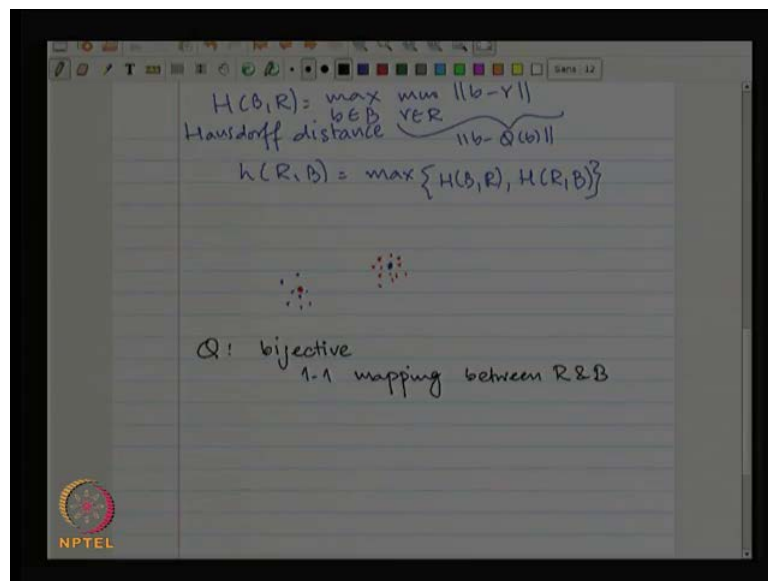 T Sans 12
H(B,R) = max min ||b-r||
b∈B r∈R
Hausdorff distance ||b-Q(b)||
h(R,B) = max {H(B,R), H(R,B)}
Q: bijective
1-1 mapping between R & B
NPTEL